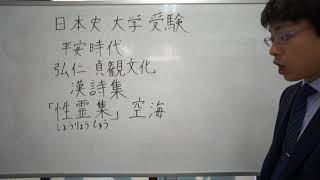 日本史 大学 受験
平安時代
弘仁 貞観文化
漢詩集
「性霊集」空海
しょうりょうしゅう